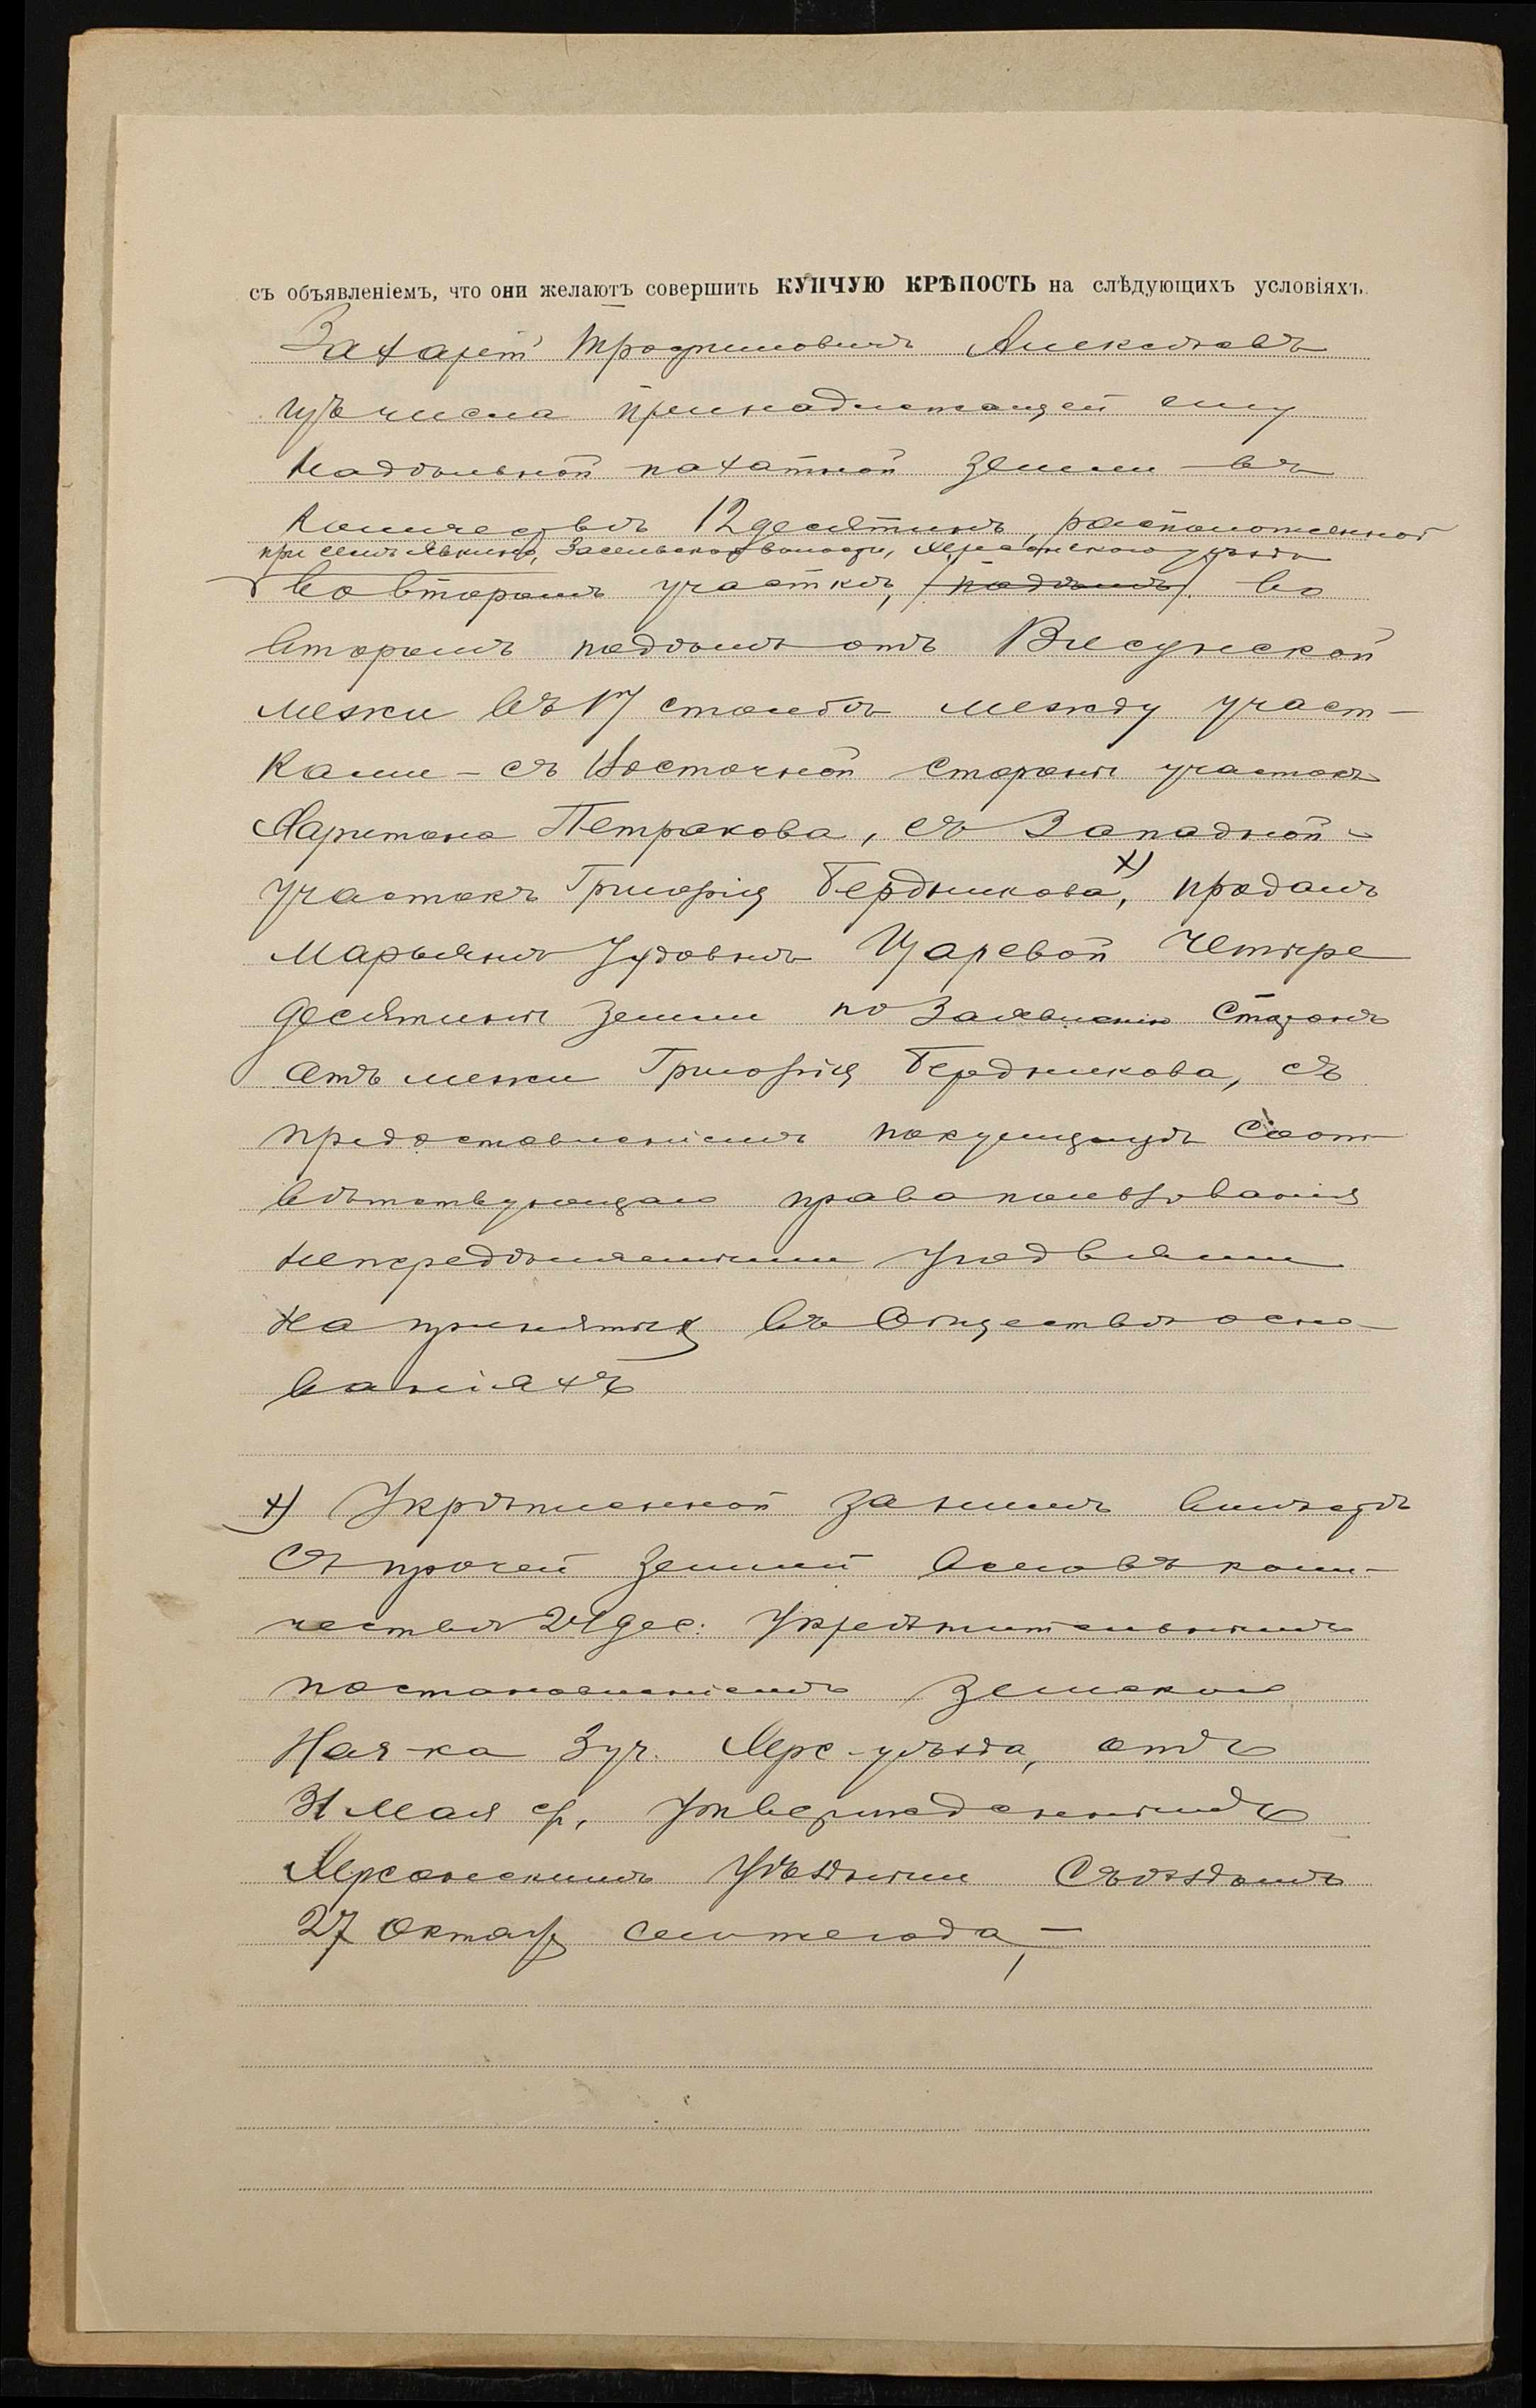 съ объявленіемъ, что они желаютъ совершить КУПЧУЮ КРѢПОСТЬ на слѣдующихъ условіяхъ.
Захарій Трофимовичъ Алексѣевъ
изъ числа принадлежащей ему
надѣльной пахатной земли въ
количествѣ 12 десятинъ, расположенной
при селѣ Явкино, Засельской волости, Херсонскаго уѣзда
во второмъ участкѣ, (надѣлѣ) во
второмъ надѣлѣ отъ Висунской
межи въ 17 столбѣ между участ-
ками - съ Восточной стороны участокъ
Харитона Петракова, съ Западной -
участокъ Григорія Бердникова х), продалъ
Марьянѣ Іудовнѣ Царевой четыре
десятины земли по заявленію сторонъ
отъ межи Григорія Бердникова, съ
предоставленіемъ покупщицѣ соот-
вѣтствующаго права пользованія
непередѣляемыми угодьями
на принятыхъ въ обществѣ осно-
ваніяхъ
х) Укрѣпленной за нимъ вмѣстѣ
съ прочей землей всего въ коли-
чествѣ 24 дес. Укрѣпительнымъ
постановленіемъ Земскаго
Нач-ка 3 уч. Херс. уѣзда, отъ
31 Мая с/г, утвержденнымъ
Херсонскимъ Уѣзднымъ Съѣздомъ
27 Октяб сего же года,-